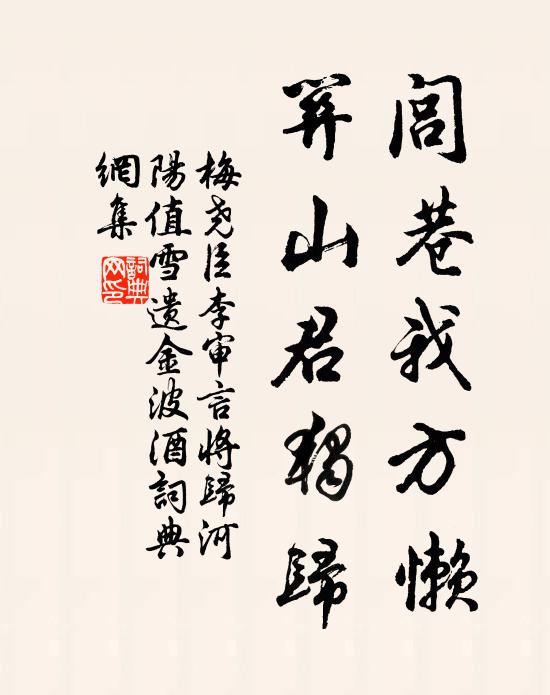 閭巷我方懶
關山君獨歸
梅尧臣李审言將歸河
陽值雪遺金波酒詞典
網集
詞典网印